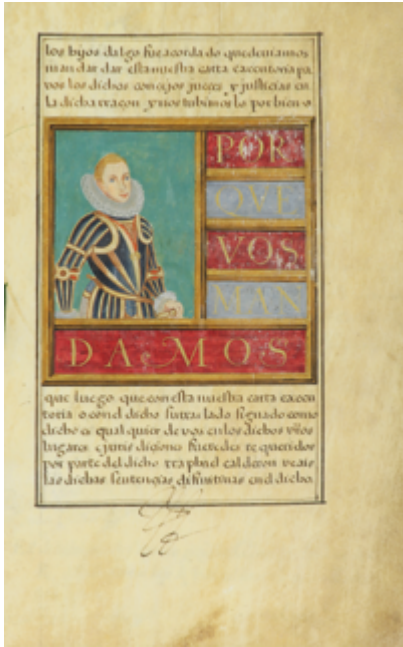 los hijos dalgo fue acorda do que deuiamos
man dar dar esta nuestra carta executoria pa
vos los dichos concejos jueces y justicias en
la dicha rraçon y nos tubimos lo por bien
POR
QVE
VOS
MAN
DAMOS
que luego que con esta nuestra carta execu
toria o con el dicho su tras lado signado como
dicho es qual quier de vos en los dichos
lugares e juris diçiones fueredes re queridos
por parte del dicho rraphael calderon veais
las dichas sentençias difinitiuas en el dicho